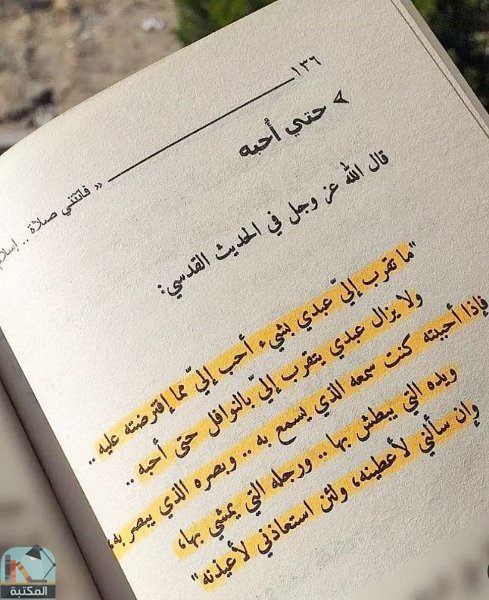 ١٣٦
« فاتتني صلاة .. إسلام
حتي أحبه
قال الله عز وجل في الحديث القدسي:
"ما تقرب إليّ عبدي بشيء أحب إليّ مما إفترضته عليه ..
ولا يزال عبدي يتقرب إليّ بالنوافل حتى أحبه ..
فإذا أحببته كنت سمعه الذي يسمع به .. وبصره الذي يبصر به،
ويده التي يبطش بها .. ورجله التي يمشي بها،
وإن سألني لأعطينه، ولئن استعاذني لأعيذنه"
المكتبة